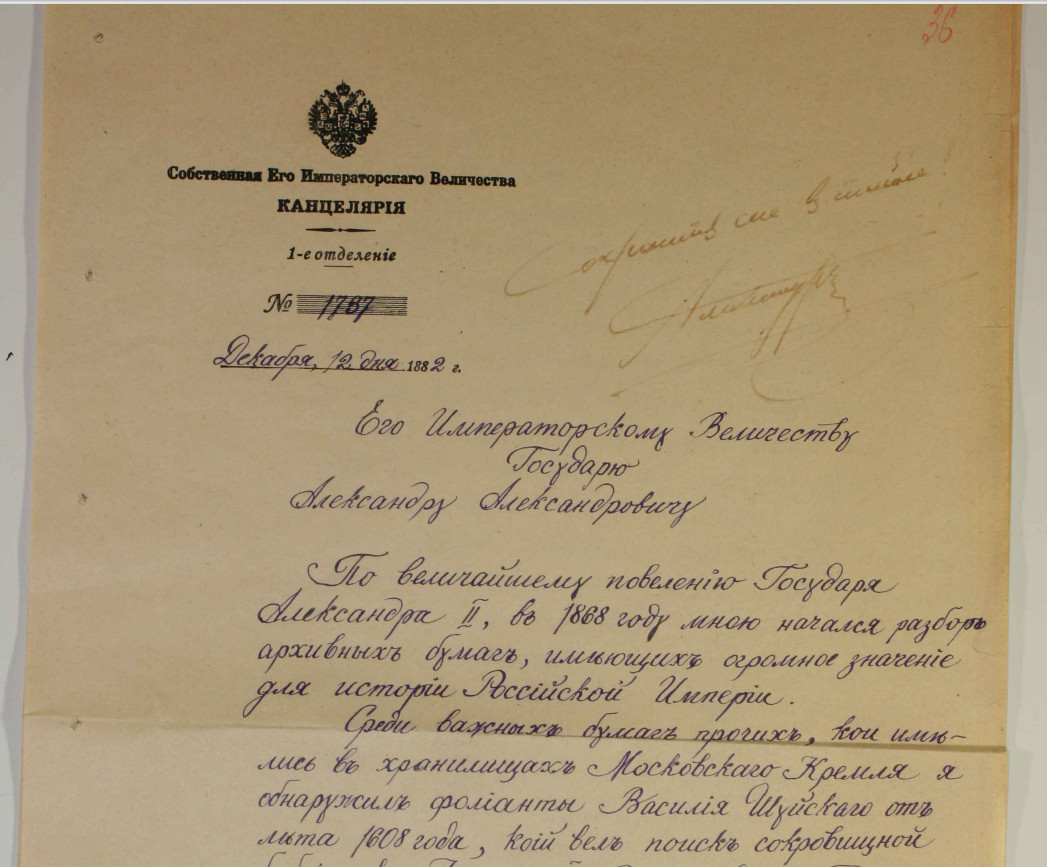 36
Собственная Его Императорскаго Величества
КАНЦЕЛЯРІЯ
1-е отделеніе
№ 1767
Декабря, 12 дня 1882 г.
Его Императорскому Величеству
Государю
Александру Александровичу
По величайшему повеленію Государя
Александра II, въ 1868 году мною начался разборъ
архивныхъ бумагъ, имѣющихъ огромное значеніе
для исторіи Россійской Имперіи.
Среди важныхъ бумагъ прочихъ, кои имѣ-
лись въ хранилищахъ Московскаго Кремля я
обнаружилъ фоліанты Василія Шуйскаго отъ
лѣта 1608 года, кой велъ поискъ сокровищной